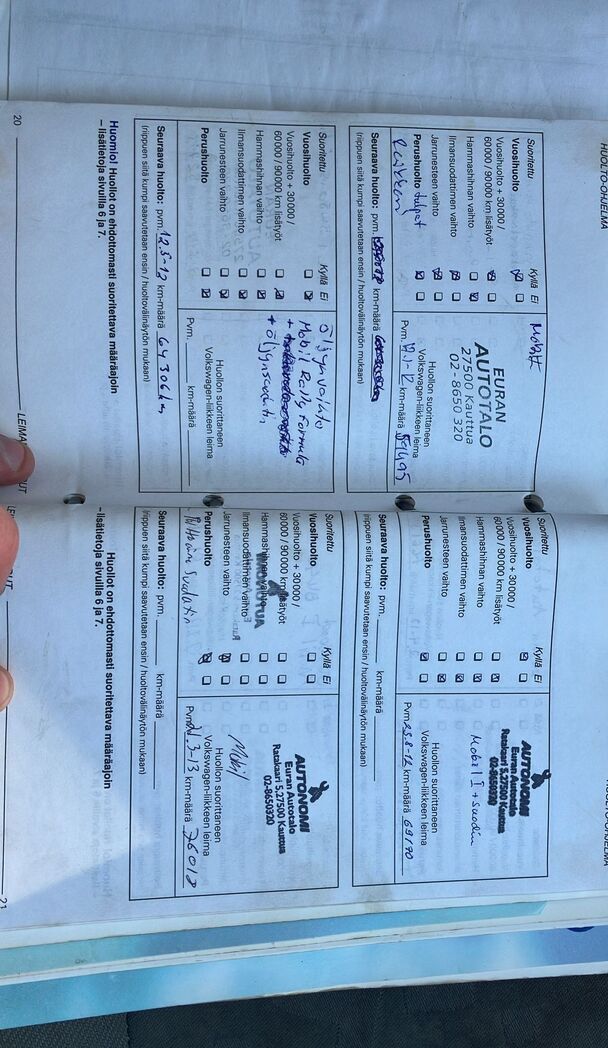 HUOLTO-OHJELMA
Suoritettu Kyllä Ei
Vuosihuolto
Vuosihuolto + 30 000 /
60 000 / 90 000 km lisätyöt
Hammashihnan vaihto
Ilmansuodattimen vaihto
Jarrunesteen vaihto
Perushuolto
EURAN
AUTOTALO
27500 Kauttua
02 - 8650 320
Huollon suorittaneen
Volkswagen-liikkeen leima
Pvm. km-määrä
Seuraava huolto: pvm. km-määrä
(riippuen siitä kumpi saavutetaan ensin / huoltovälinäytön mukaan)
Suoritettu Kyllä Ei
Vuosihuolto
Vuosihuolto + 30 000 /
60 000 / 90 000 km lisätyöt
Hammashihnan vaihto
Ilmansuodattimen vaihto
Jarrunesteen vaihto
Perushuolto
Öljynvaihto
Mobil Rally formula
+ öljynsuodatin
Huollon suorittaneen
Volkswagen-liikkeen leima
Pvm. km-määrä
Seuraava huolto: pvm. 12.5-12 km-määrä 64306km
(riippuen siitä kumpi saavutetaan ensin / huoltovälinäytön mukaan)
Huomio! Huollot on ehdottomasti suoritettava määräajoin
– lisätietoja sivuilla 6 ja 7.
20
Suoritettu Kyllä Ei
Vuosihuolto
Vuosihuolto + 30 000 /
60 000 / 90 000 km lisätyöt
Hammashihnan vaihto
Ilmansuodattimen vaihto
Jarrunesteen vaihto
Perushuolto
AUTONOMI
Euran Autotalo
Ratakaari 5, 27500 Kauttua
02-8650320
Mobil 1 + suodin
Huollon suorittaneen
Volkswagen-liikkeen leima
Pvm. 23.8-12 km-määrä 69190
Seuraava huolto: pvm. km-määrä
(riippuen siitä kumpi saavutetaan ensin / huoltovälinäytön mukaan)
Suoritettu Kyllä Ei
Vuosihuolto
Vuosihuolto + 30 000 /
60 000 / 90 000 km lisätyöt
Hammashihnan vaihto
Ilmansuodattimen vaihto
Jarrunesteen vaihto
Perushuolto
AUTONOMI
Euran Autotalo
Ratakaari 5, 27500 Kauttua
02-8650320
Mobil
Huollon suorittaneen
Volkswagen-liikkeen leima
Pvm. km-määrä 76018
Seuraava huolto: pvm. km-määrä
(riippuen siitä kumpi saavutetaan ensin / huoltovälinäytön mukaan)
Huollot on ehdottomasti suoritettava määräajoin
– lisätietoja sivuilla 6 ja 7.
21